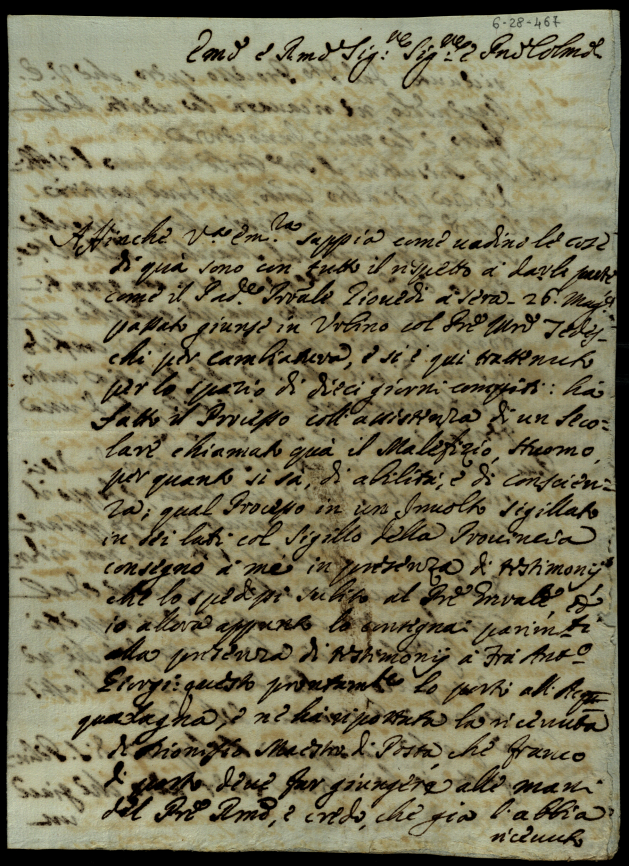 6-28-467
Emo e Rmo Sig:re Sig:re e Pne Colmo
Affinche V.a Em.za sappia come vadino le cose
di quà sono con tutto il rispetto à darle parte
come il Pad.e Prvale Giovedi à sera 26. Magg.
passato giunse in Urbino col Pre Mro Tedes-
chi per cambiatura, e si è qui trattenuto
per lo spazio di dieci giorni compiti: hà
fatto il Processo coll'assistenza di un seco-
lare chiamato quà il Malefizio, Huomo,
per quanto si sà, di abilità, e di conscien-
za; qual Processo in un Involto sigillato
in sei lati col Sigillo della Provincia
consegno à mè in presenza di testimonij
che lo spedissi subito al Pre
io allora appunto lo consegnai parim.ti
alla presenza di testimonij à Frà Ant.o
Giorgi: questo prontam.te lo portò all'Acqua
qualagna, e nè hà riportata la ricevuta
di Dionisio Maestro di Posta, che franco
di porto deve far giungere alle mani
del Pre Rmo, e credo, che già l'abbia
ricevuto